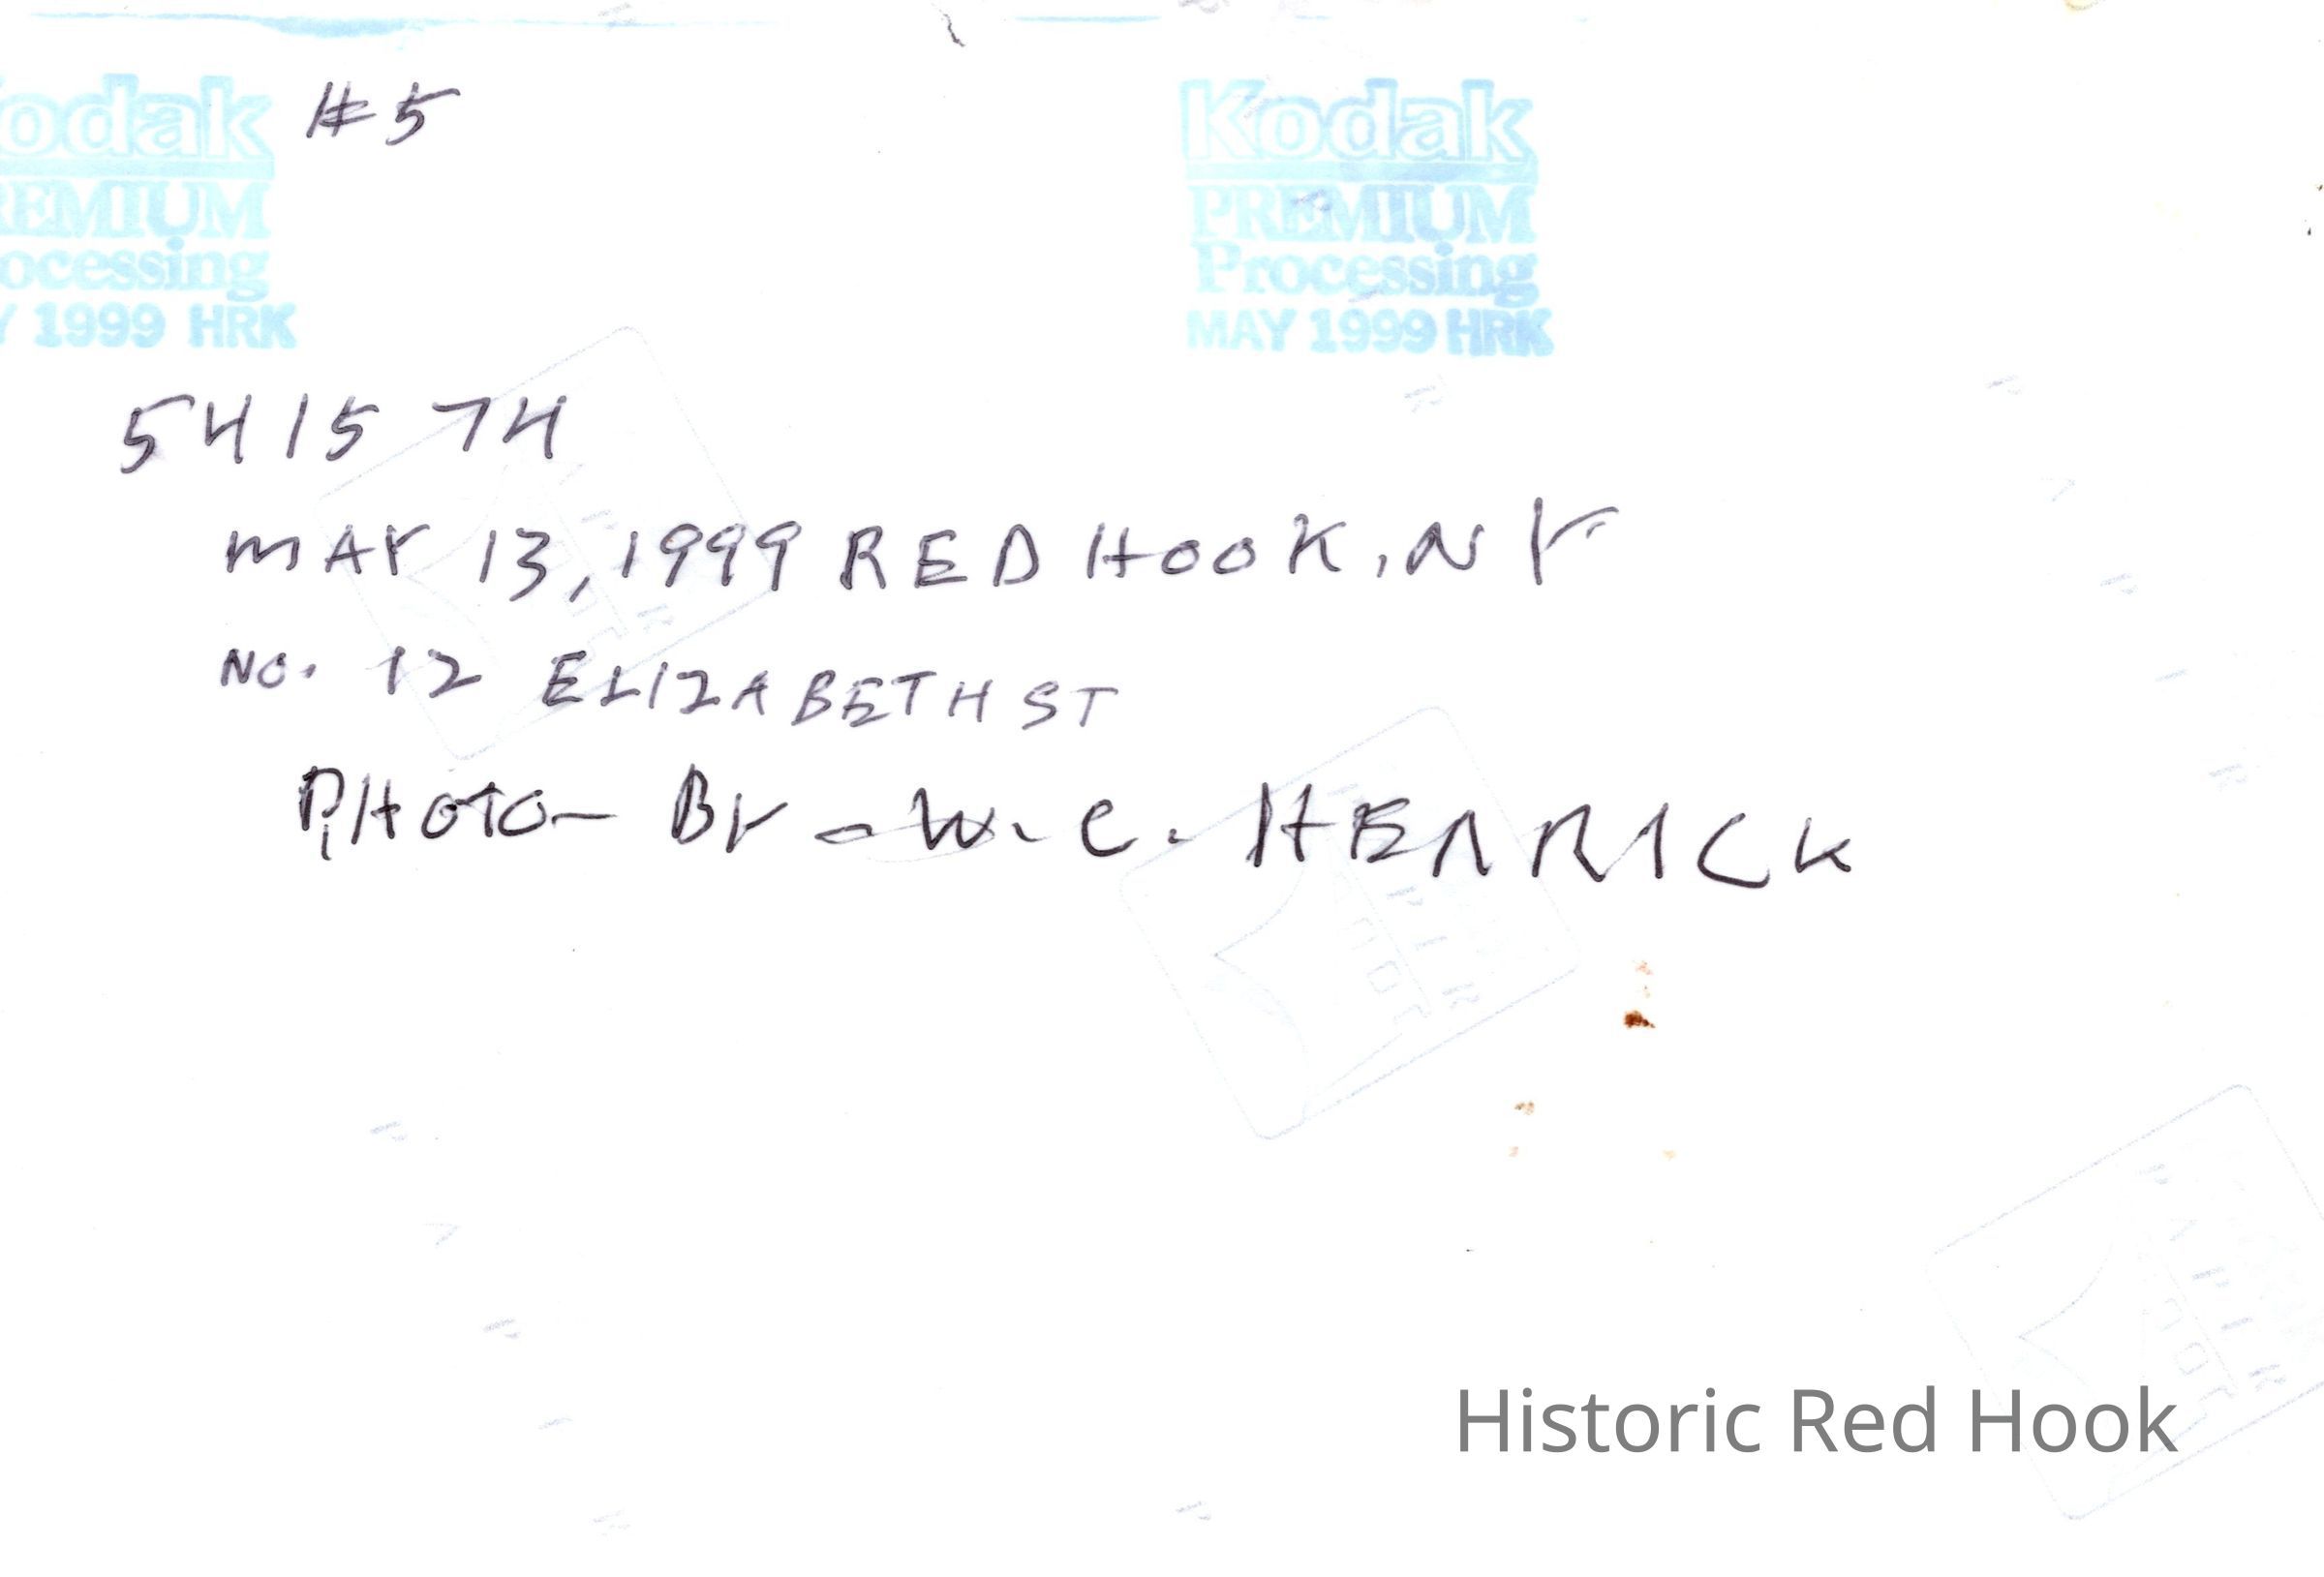 odak
REMIUM
ocessing
Y 1999 HRK
#5
Kodak
PREMIUM
Processing
MAY 1999 HRK
5415 74
MAY 13, 1999 RED HOOK, NY
NO. 12 ELIZABETH ST
PHOTO - BY - W. C. HERRICK
Historic Red Hook